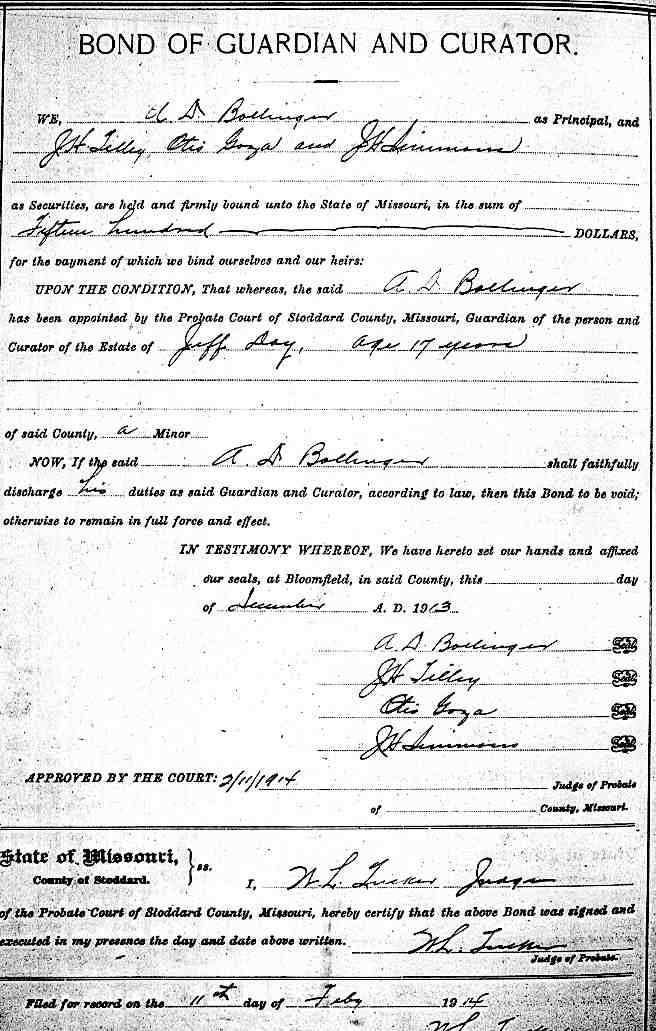 BOND OF GUARDIAN AND CURATOR.
WE, A D Bollinger as Principal, and
JH Tilley, Otis Goza and JH Simmons
as Securities, are held and firmly bound unto the State of Missouri, in the sum of
Fifteen hundred DOLLARS,
for the payment of which we bind ourselves and our heirs:
UPON THE CONDITION, That whereas, the said A D Bollinger
has been appointed by the Probate Court of Stoddard County, Missouri, Guardian of the person and
Curator of the Estate of Jeff Day, age 17 years
of said County, a Minor
NOW, If the said A D Bollinger shall faithfully
discharge his duties as said Guardian and Curator, according to law, then this Bond to be void;
otherwise to remain in full force and effect.
IN TESTIMONY WHEREOF, We have hereto set our hands and affixed
our seals, at Bloomfield, in said County, this day
of December A. D. 1913
A D Bollinger Seal
JH Tilley Seal
Otis Goza Seal
JH Simmons Seal
APPROVED BY THE COURT: 2/11/1914 Judge of Probate
of County, Missouri.
State of Missouri, } ss.
County of Stoddard.
I, W.L. Tucker Judge
of the Probate Court of Stoddard County, Missouri, hereby certify that the above Bond was signed and
executed in my presence the day and date above written. W.L. Tucker
Judge of Probate.
Filed for record on the 11th day of Feby 1914